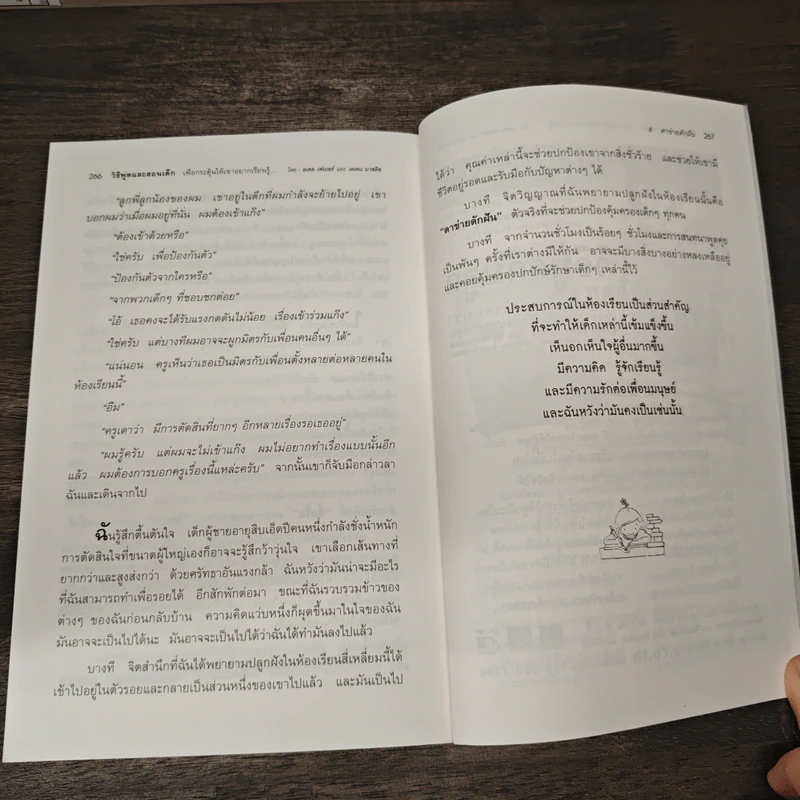 266 วิธีพูดและสอนเด็ก เพื่อกระตุ้นให้เขาอยากเรียนรู้... โดย : อเดล เฟเบอร์ และ เอเลน มาซลิช
"ลูกพี่ลูกน้องของผม เขาอยู่ในตึกที่ผมกำลังจะย้ายไปอยู่ เขา
บอกผมว่าเมื่อผมอยู่ที่นั่น ผมต้องเข้าแก๊ง"
"ต้องเข้าด้วยหรือ"
"ใช่ครับ เพื่อป้องกันตัว"
"ป้องกันตัวจากใครหรือ"
"จากพวกเด็กๆ ที่ชอบชกต่อย"
"โอ้ เธอคงจะได้รับแรงกดดันไม่น้อย เรื่องเข้าร่วมแก๊ง"
"ใช่ครับ แต่บางทีผมอาจจะผูกมิตรกับเพื่อนคนอื่นๆ ได้"
"แน่นอน ครูเห็นว่าเธอเป็นมิตรกับเพื่อนตั้งหลายต่อหลายคนใน
ห้องเรียนนี้"
"อืม"
"ครูเดาว่า มีการตัดสินที่ยากๆ อีกหลายเรื่องรอเธออยู่"
"ผมรู้ครับ แต่ผมจะไม่เข้าแก๊ง ผมไม่อยากทำเรื่องแบบนั้นอีก
แล้ว ผมต้องการบอกครูเรื่องนี้แหล่ะครับ" จากนั้นเขาก็จับมือกล่าวลา
ฉันและเดินจากไป
ฉันรู้สึกตื้นตันใจ เด็กผู้ชายอายุสิบเอ็ดปีคนหนึ่งกำลังชั่งน้ำหนัก
การตัดสินใจที่ขนาดผู้ใหญ่เองก็อาจจะรู้สึกว้าวุ่นใจ เขาเลือกเส้นทางที่
ยากกว่าและสูงส่งกว่า ด้วยศรัทธาอันแรงกล้า ฉันหวังว่ามันน่าจะมีอะไร
ที่ฉันสามารถทำเพื่อรอยได้ อีกสักพักต่อมา ขณะที่ฉันรวบรวมข้าวของ
ต่างๆ ของฉันก่อนกลับบ้าน ความคิดแว่บหนึ่งก็ผุดขึ้นมาในใจของฉัน
มันอาจจะเป็นไปได้นะ มันอาจจะเป็นไปได้ว่าฉันได้ทำมันลงไปแล้ว
บางที จิตสำนึกที่ฉันได้พยายามปลูกฝังในห้องเรียนสี่เหลี่ยมนี้ได้
เข้าไปอยู่ในตัวรอยและกลายเป็นส่วนหนึ่งของเขาไปแล้ว และมันเป็นไป
8 : ตาข่ายดักฝัน 267
ได้ว่า คุณค่าเหล่านี้จะช่วยปกป้องเขาจากสิ่งชั่วร้าย และช่วยให้เขามี
ชีวิตอยู่รอดและรับมือกับปัญหาต่างๆ ได้
บางที จิตวิญญาณที่ฉันพยายามปลูกฝังในห้องเรียนนั้นคือ
"ตาข่ายดักฝัน" ตัวจริงที่จะช่วยปกป้องคุ้มครองเด็กๆ ทุกคน
บางที จากจำนวนชั่วโมงเป็นร้อยๆ ชั่วโมงและการสนทนาพูดคุย
เป็นพันๆ ครั้งที่เราต่างมีให้กัน อาจจะมีบางสิ่งบางอย่างหลงเหลืออยู่
และคอยคุ้มครองปกปักษ์รักษาเด็กๆ เหล่านี้ไว้
ประสบการณ์ในห้องเรียนเป็นส่วนสำคัญ
ที่จะทำให้เด็กเหล่านี้เข้มแข็งขึ้น
เห็นอกเห็นใจผู้อื่นมากขึ้น
มีความคิด รู้จักเรียนรู้
และมีความรักต่อเพื่อนมนุษย์
และฉันหวังว่ามันคงเป็นเช่นนั้น